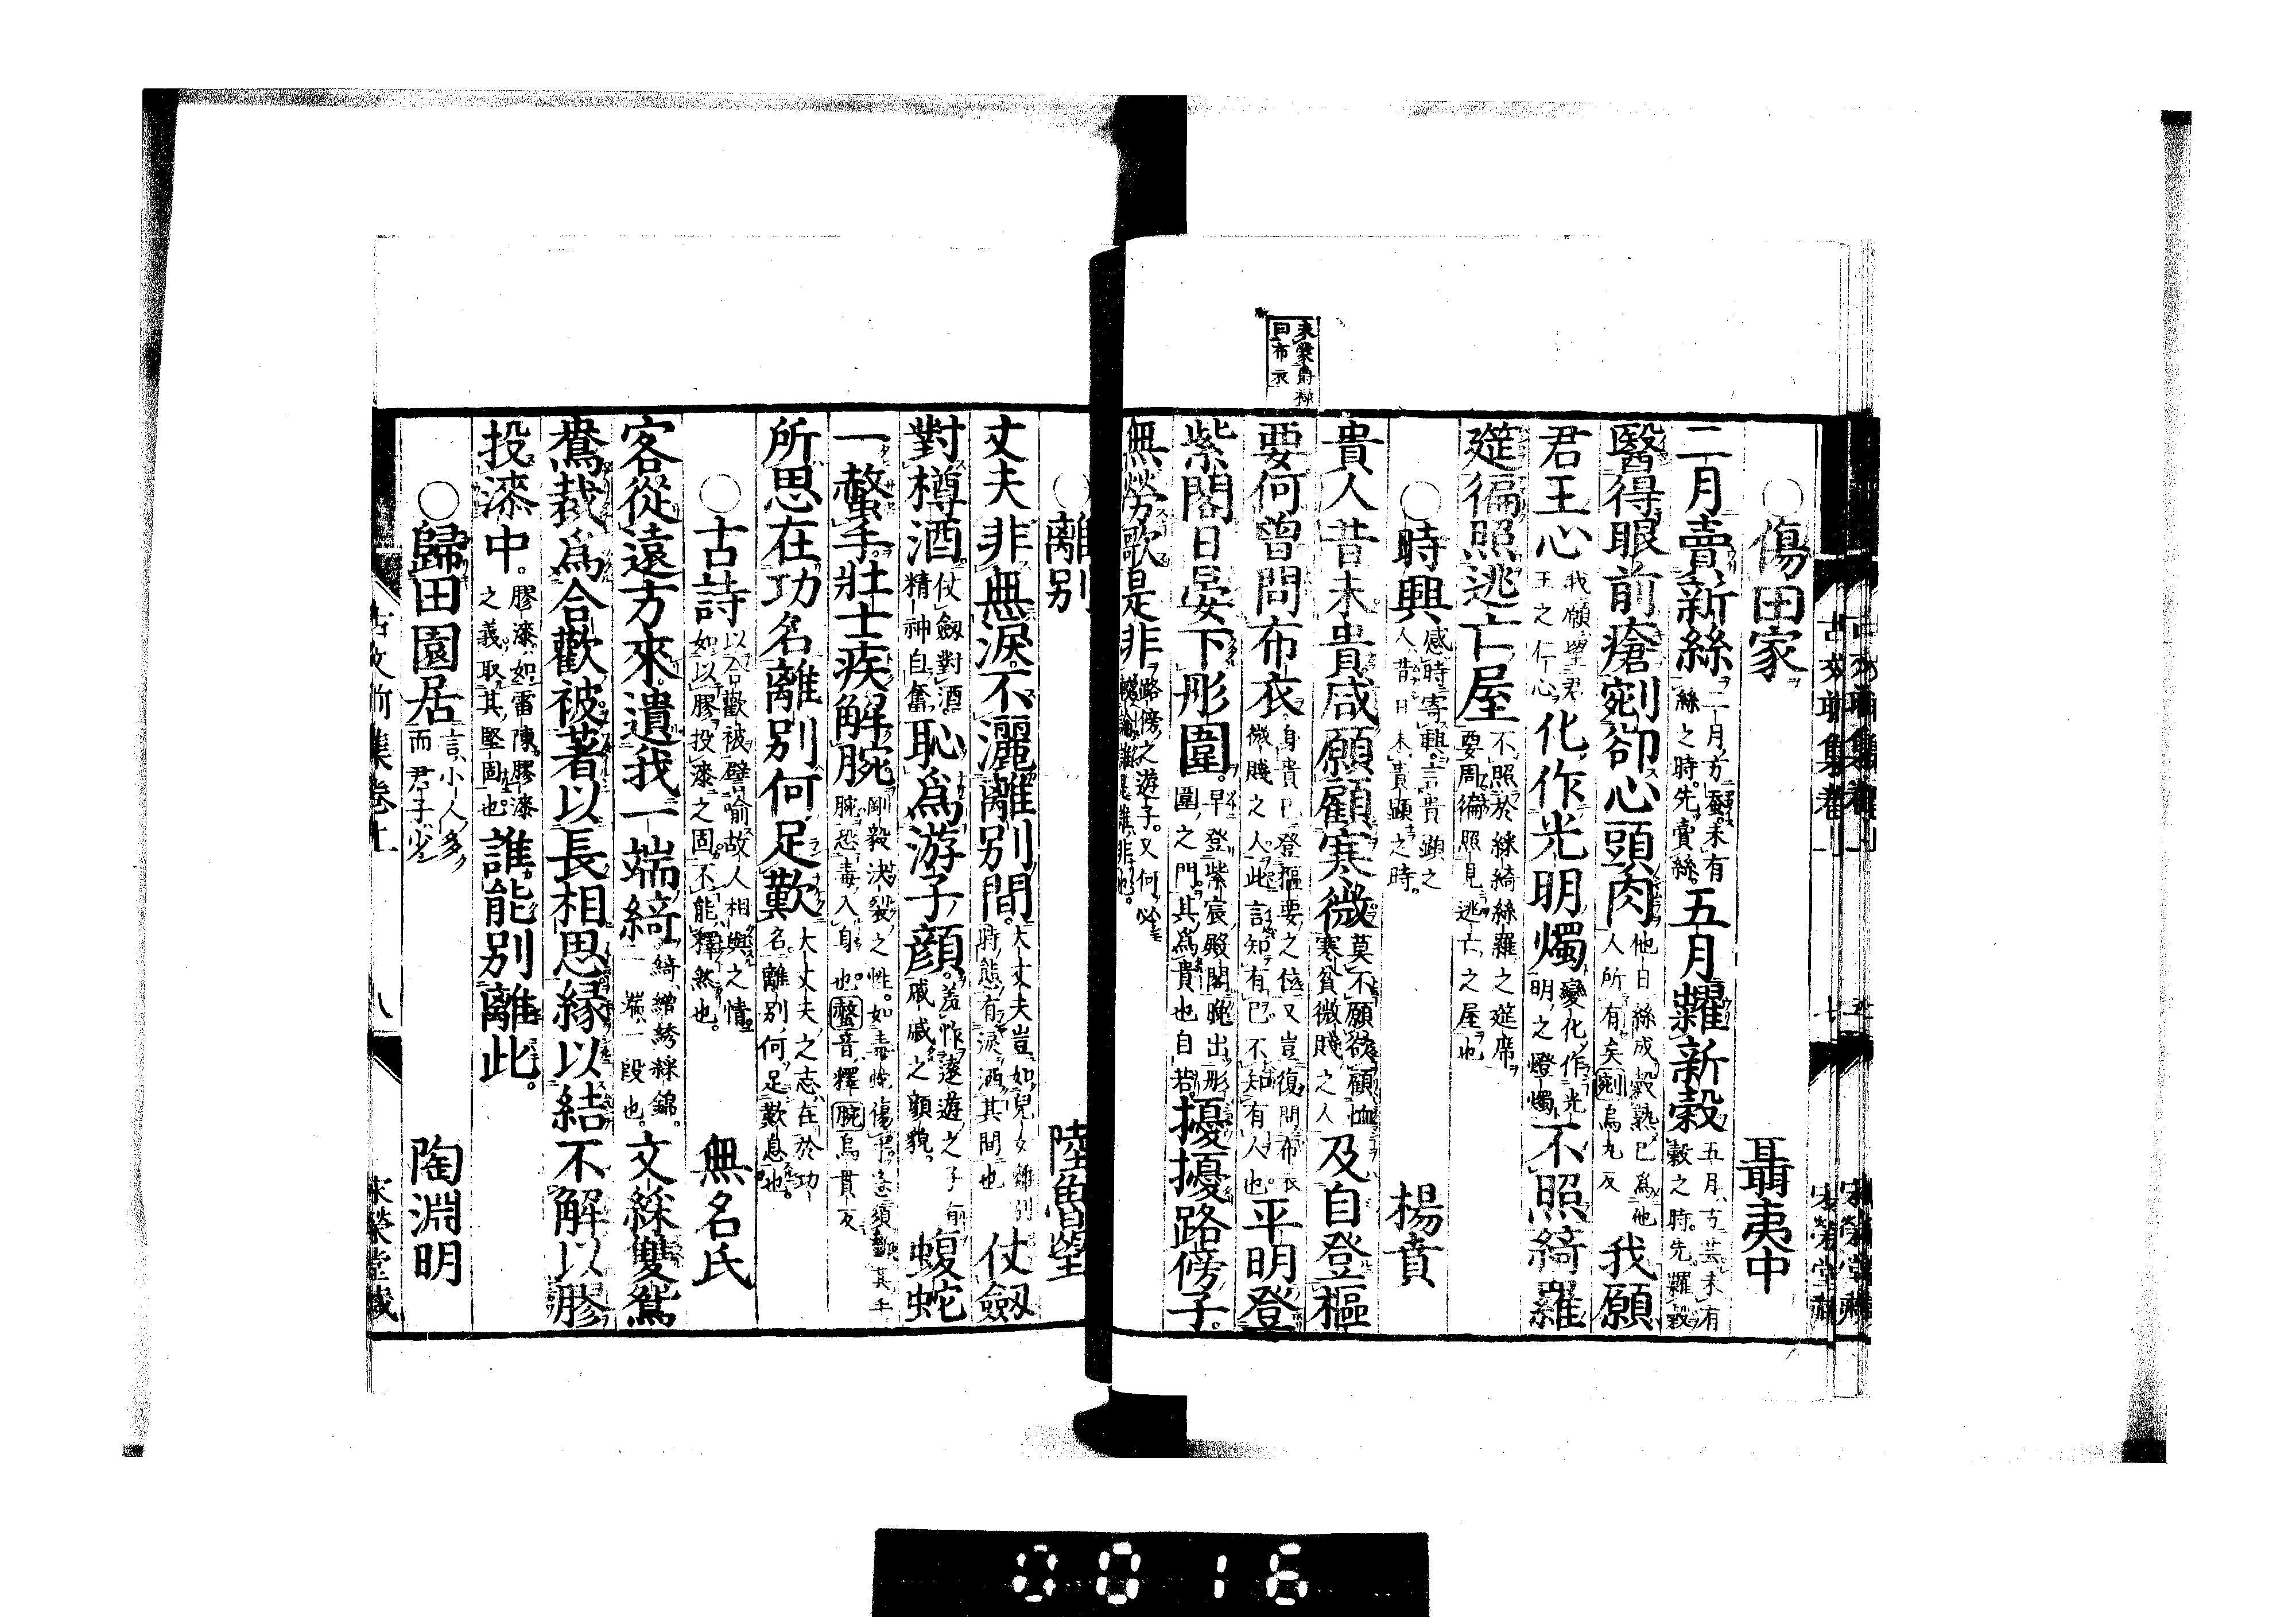 未蒙爵禄
曰布衣
○傷田家 聶夷中
二月賣新絲 二月方蚕未有絲之時先賣絲 五月糶新穀 五月方芸未有穀之時先糶穀
醫得眼前瘡剜卻心頭肉 他日絲成穀熟已為他人所有矣剜烏九反 我願
君王心 我願望君王之仁心 化作光明燭 變化作光明之燈燭 不照綺羅
筵徧照逃亡屋 不照於綵綺絲羅之筵席要周徧照見逃亡之屋也
○時興 感時寄興言貴顕之人昔日未貴顕之時 楊賁
貴人昔未貴咸願顧寒微 莫不願欲顧恤寒貧微賤之人 及自登樞
要何曾問布衣 身貴已登樞要之位又豈復問布衣微賤之人此言知有己不知有人也 平明登
紫閣日晏下彤圍 早登紫宸殿閣晩出彤圍之門其為貴也自若 擾擾路傍子
無勞歌是非 路傍之遊子又何必
○離別 陸魯望
丈夫非無淚不灑離別間 大丈夫豈如兒女離別時態有淚洒其間也 仗劔
對樽酒 仗劔對酒精神自奮 恥為游子顔 羞作遠遊之子有戚戚之顔貌 蝮蛇
一螫手壯士疾解腕 剛毅決裂之性如毒蛇傷手急須其手腕恐毒人身也螫音釋腕烏貫反
所思在功名離別何足歎 大丈夫之志在於功名離別何足歎息也
○古詩 以合歡被譬喻故人相與之情如以膠投漆之固不能釋然也 無名氏
客從遠方來遺我一端綺 綺繒綉綵錦一端一段也 文綵雙鴛
鴦裁為合歡被著以長相思緣以結不解以膠
投漆中 膠漆如雷陳膠漆之義取其堅固也 誰能別離此
○歸田園居 言小人多而君子少 陶淵明
古文前集卷上 八 宋榮堂藏